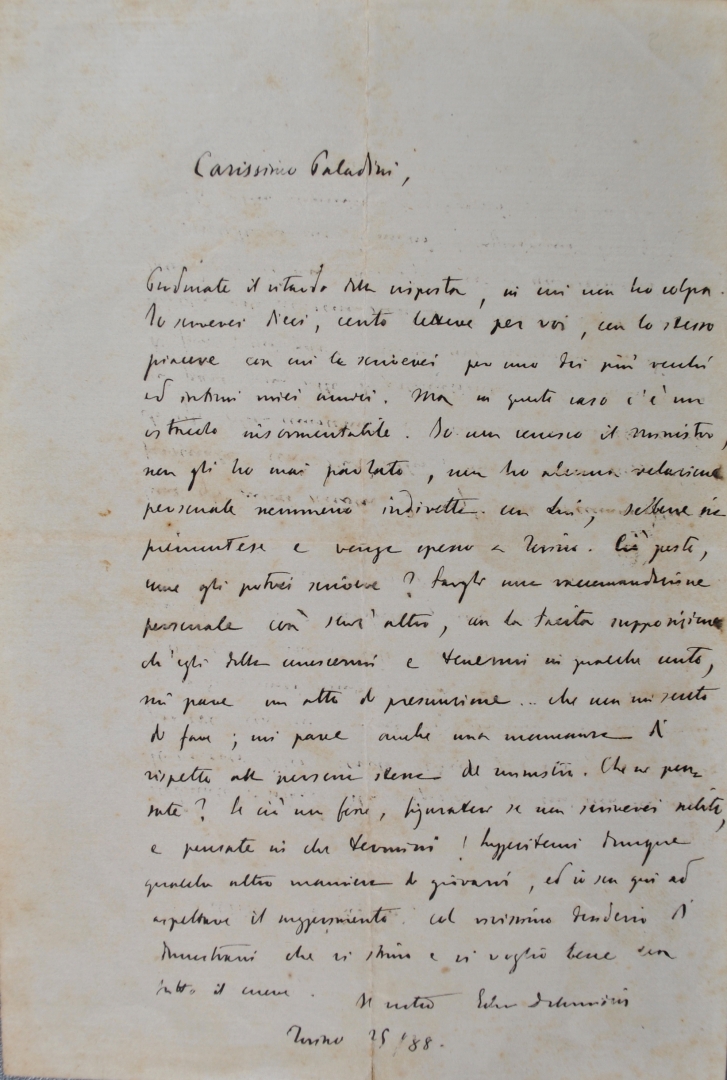 Carissimo Paladini,
Perdonate il ritardo della risposta, in cui non ho colpa.
Io scriverei dieci, cento lettere per voi, con lo stesso
piacere con cui le scriverei per uno dei più vecchi
ed intimi miei amici. Ma in questo caso c'è un
ostacolo insormontabile. Io non conosco il ministro,
non gli ho mai parlato, non ho alcuna relazione
personale nemmeno indiretta con Lui, sebbene sia
piemontese e venga spesso a Torino. Ciò posto,
come gli potrei scrivere? Fargli una raccomandazione
personale così senz'altro, con la tacita supposizione
ch'egli debba conoscermi e tenermi in qualche conto,
mi pare un atto di presunzione... che non mi sento
di fare; mi pare anche una mancanza di
rispetto alla persona stessa del ministro. Che ne pen-
sate? Se ciò non fosse, figuratevi se non scriverei subito,
e pensate in che termini! Suggeritemi dunque
qualche altra maniera di giovarvi, ed io son qui ad
aspettare il suggerimento col vivissimo desiderio di
dimostrarvi che vi stimo e vi voglio bene con
tutto il cuore.
Il vostro Edm. De Amicis
Torino 25 '88.